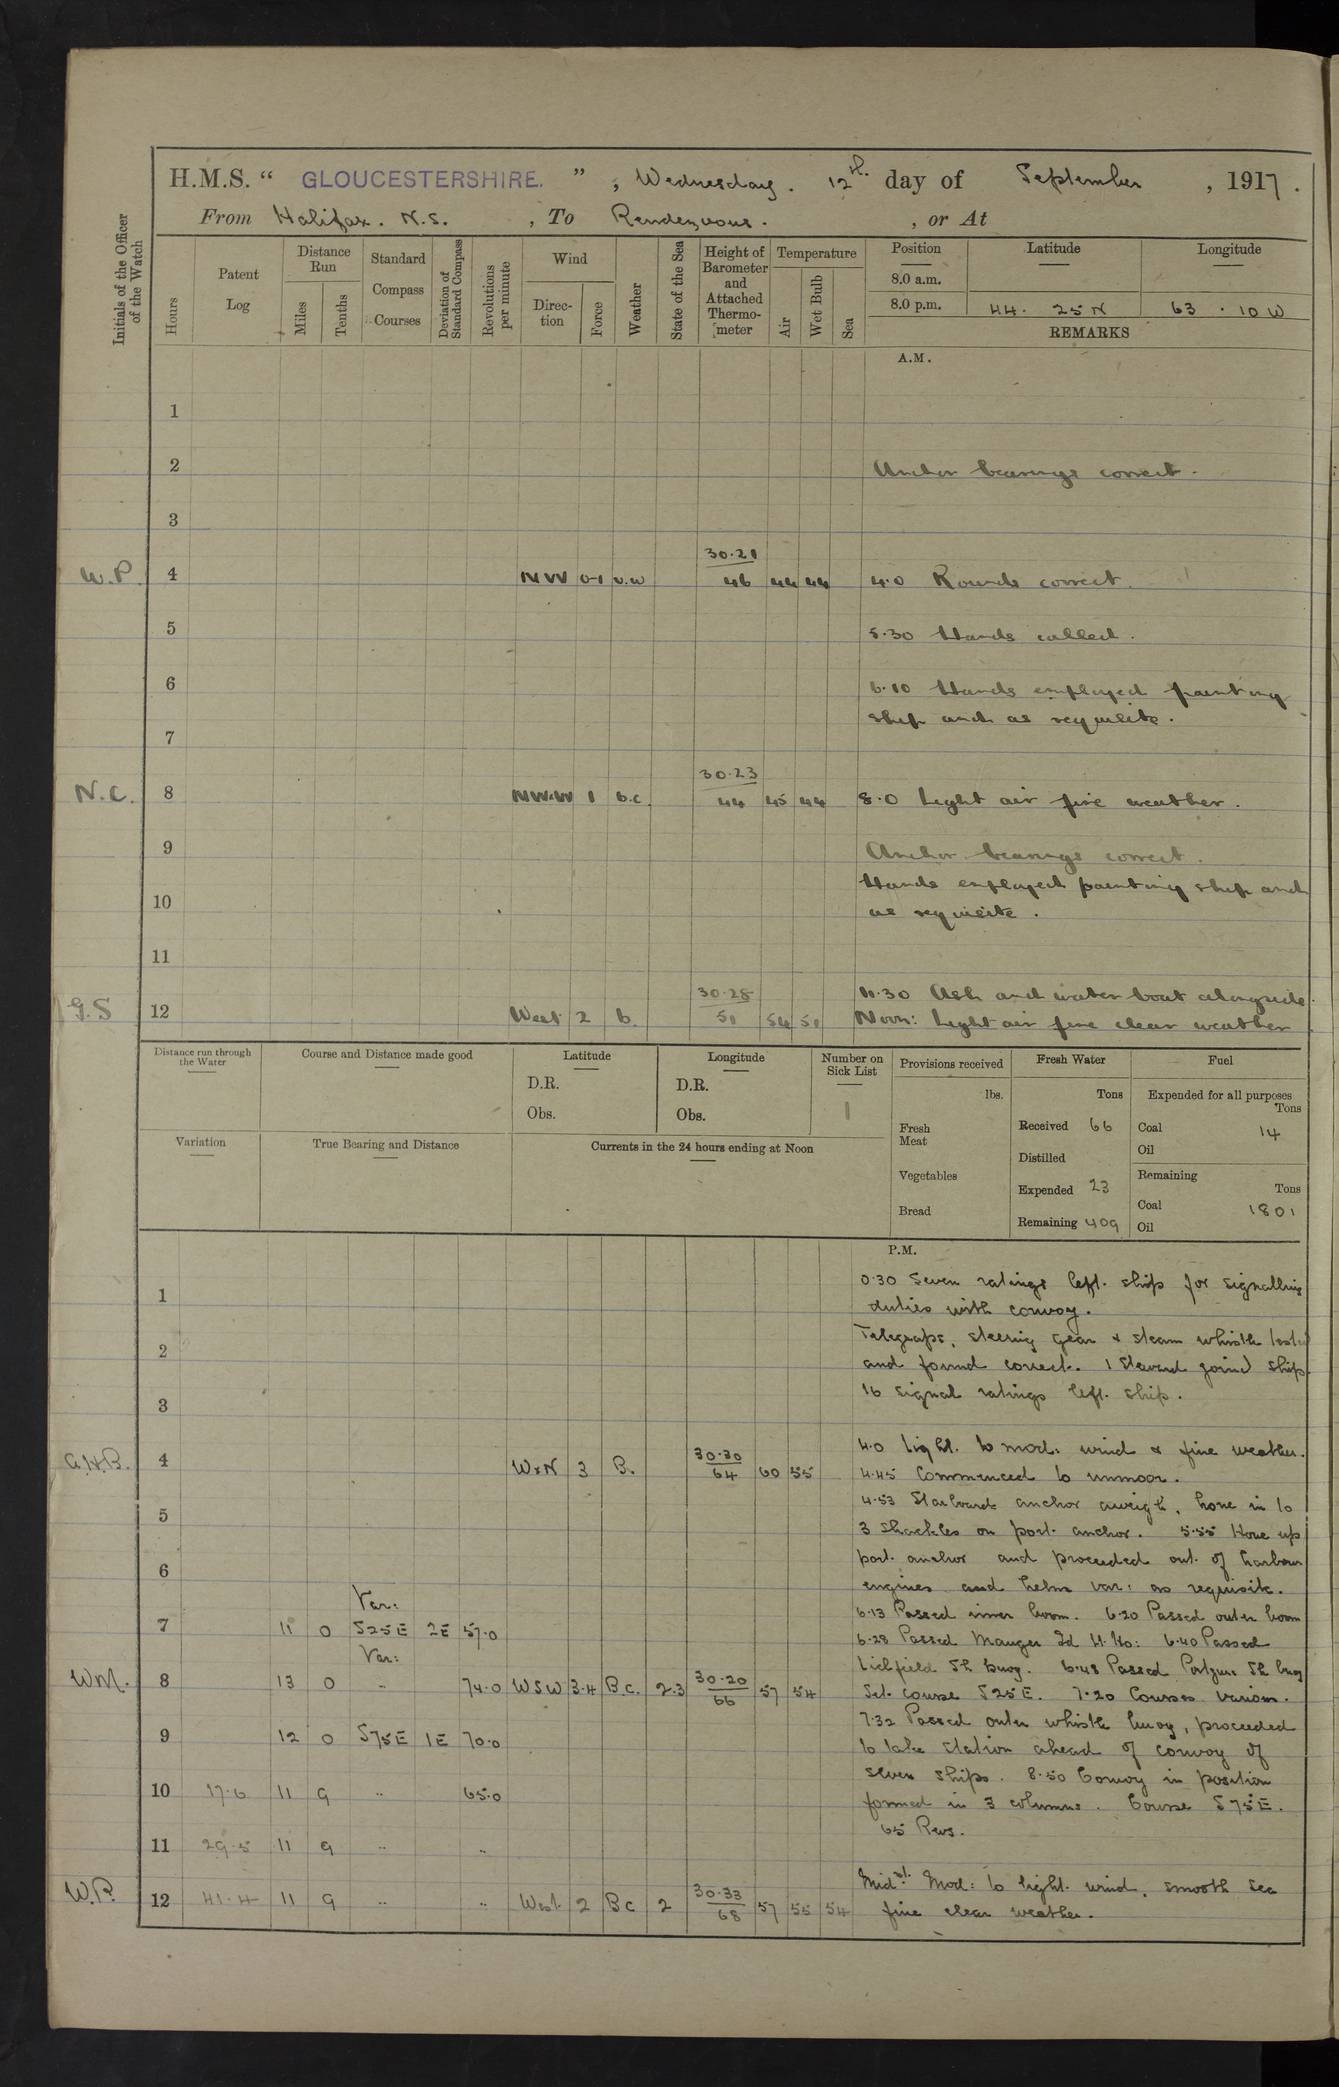 H.M.S. “ GLOUCESTERSHIRE. ” , Wednesday. 12th. day of September , 1917.
From Halifax. N.S. , To Rendezvous. , or At
Initials of the Officer of the Watch
Hours
Patent Log
Distance Run
Miles
Tenths
Standard Compass Courses
Deviation of Standard Compass
Revolutions per minute
Wind
Direction
Force
Weather
State of the Sea
Height of Barometer and Attached Thermometer
Temperature
Air
Wet Bulb
Sea
Position Latitude Longitude
8.0 a.m.
8.0 p.m. 44. 25 N 63 . 10 W
REMARKS
A.M.
1
2 Anchor bearings correct.
3
30.21
W.P. 4 NW 0-1 v.w 46 44 44 4.0 Rounds correct.
5 5.30 Hands called.
6 6.10 Hands employed painting
ship and as requisite.
7
30.23
N.C. 8 NW.W 1 b.c. 44 45 44 8.0 Light air fine weather.
9 Anchor bearings correct.
Hands employed painting ship and
10 as requisite.
11
30.28 11.30 Ash and water boat alongside.
G.S 12 West 2 b. 51 54 51 Noon: Light air fine clear weather
Distance run through the Water
Course and Distance made good
Latitude
D.R.
Obs.
Longitude
D.R.
Obs.
Number on Sick List
1
Variation
True Bearing and Distance
Currents in the 24 hours ending at Noon
Provisions received
lbs.
Fresh Meat
Vegetables
Bread
Fresh Water
Tons
Received 66
Distilled
Expended 23
Remaining 409
Fuel
Expended for all purposes
Tons
Coal 14
Oil
Remaining
Tons
Coal 1801
Oil
P.M.
0.30 Seven ratings left. ship for signalling
1 duties with convoy.
Telegraps, steering gear & steam whistle tested
2 and found correct. 1 Steward joined ship.
16 signal ratings left. ship.
3
30.30 4.0 Light. to mod: wind & fine weather.
4 WxN 3 B. 64 60 55 4.45 Commenced to unmoor.
4.53 Starboard anchor aweigh, hove in to
5 3 shackles on port. anchor. 5.55 Hove up
port. anchor and proceeded out. of harbour
6 engines and helm var: as requisite.
Var: 6.13 Passed inner boom. 6.20 Passed outer boom
7 11 0 S25E 2E 57.0 6.28 Passed Mauger Id H. Ho: 6.40 Passed
Var: Lichfield Sh buoy. 6.48 Passed Sh buoy
30.20
WM. 8 13 0 " 74.0 WSW 3.4 B.c. 2.3 66 57 54 Set. course S25E. 7.20 Courses various.
7.32 Passed outer whistle buoy, proceeded
9 12 0 S75E 1E 70.0 to take station ahead of convoy of
seven ships. 8.50 Convoy in position
10 17.6 11 9 " 65.0 formed in 3 columns. Course S75E.
65 Revs.
11 29.5 11 9 " "
30.33 Midt. Mod: to light. wind, smooth sea
W.P. 12 41.4 11 9 " " West. 2 Bc 2 68 57 55 54 fine clear weather.